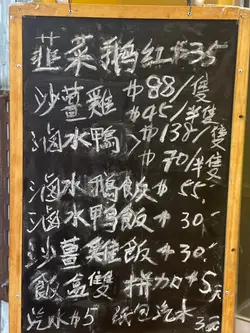 韮菜鵝紅 $35
沙薑雞 $88/隻
$45/半隻
滷水鴨 $138/隻
$70/半隻
滷水鵝飯 $55.
滷水鴨飯 $30.
沙薑雞飯 $30.
飯盒雙拼加$5元
汽水$5 紙包汽水3元